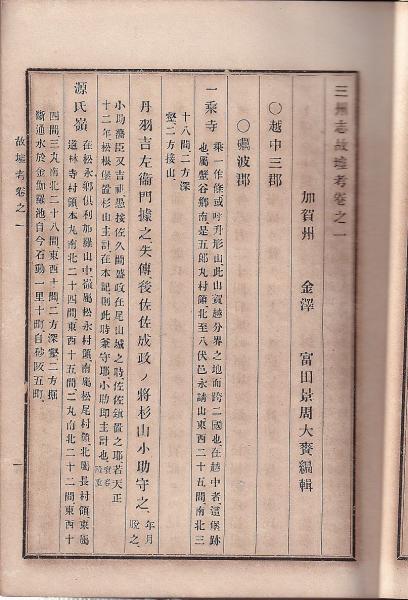 三州志故墟考卷之一
加賀州 金澤 富田景周大賚編輯
○越中三郡
○礪波郡
一乘寺 乘一作條或呼升形山此山賀越分界之地而跨二國也在越中者、這堡跡
也、屬蟹谷鄉南、是五郎丸村領、北至八伏邑永請山東西二十五間、南北三
十八間二方深
壑二方接山、
丹羽吉左衞門據之、失傳後佐佐成政ノ將杉山小助守之、年月
脫之、
小助藩臣又吉祖愚按佐久間盛政在尾山城之時佐佐鎮置之耶若天正
十二年松根堡置杉山主計在本記則此時兼守耶小助即主計也、
源氏嶺 在松永鄉俱利加羅山中嶺屬松永村領南屬松尾村領、北屬長村領東屬
道林寺村領、本丸南北二十四間東西十五間、二丸南北二十二間東西十
四間三丸南北二十八間東西十間二方深壑二方掘
斷通水於金伽羅池自今石動一里十町、自砂陂五町、
故墟考卷之一
一